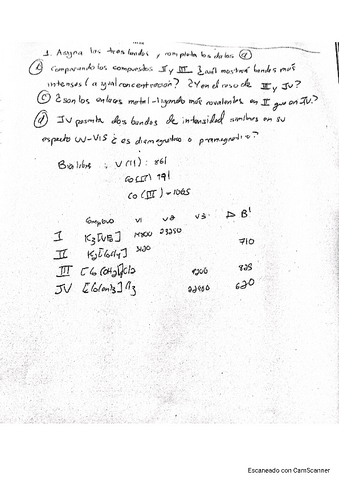 1. Asigna las tres bandas y completa los datos (a)
(b) Comparando los compuestos II y III ¿cuál mostrará bandas más
intensas (a igual concentración? ¿Y en el caso de II y IV?
(c) ¿son los enlaces metal-ligando más covalentes en II que en IV?
(d) IV presenta dos bandas de intensidad similares en su
espectro UV-VIS ¿es diamagnético o paramagnético?
Bion libre: V(III): 861
Co(II) 971
Co(III) = 1065
Complejo V1 V2 V3 Δ B'
I K3[VF6] 14800 23250
II 710
III 825
IV 620
Escaneado con CamScanner